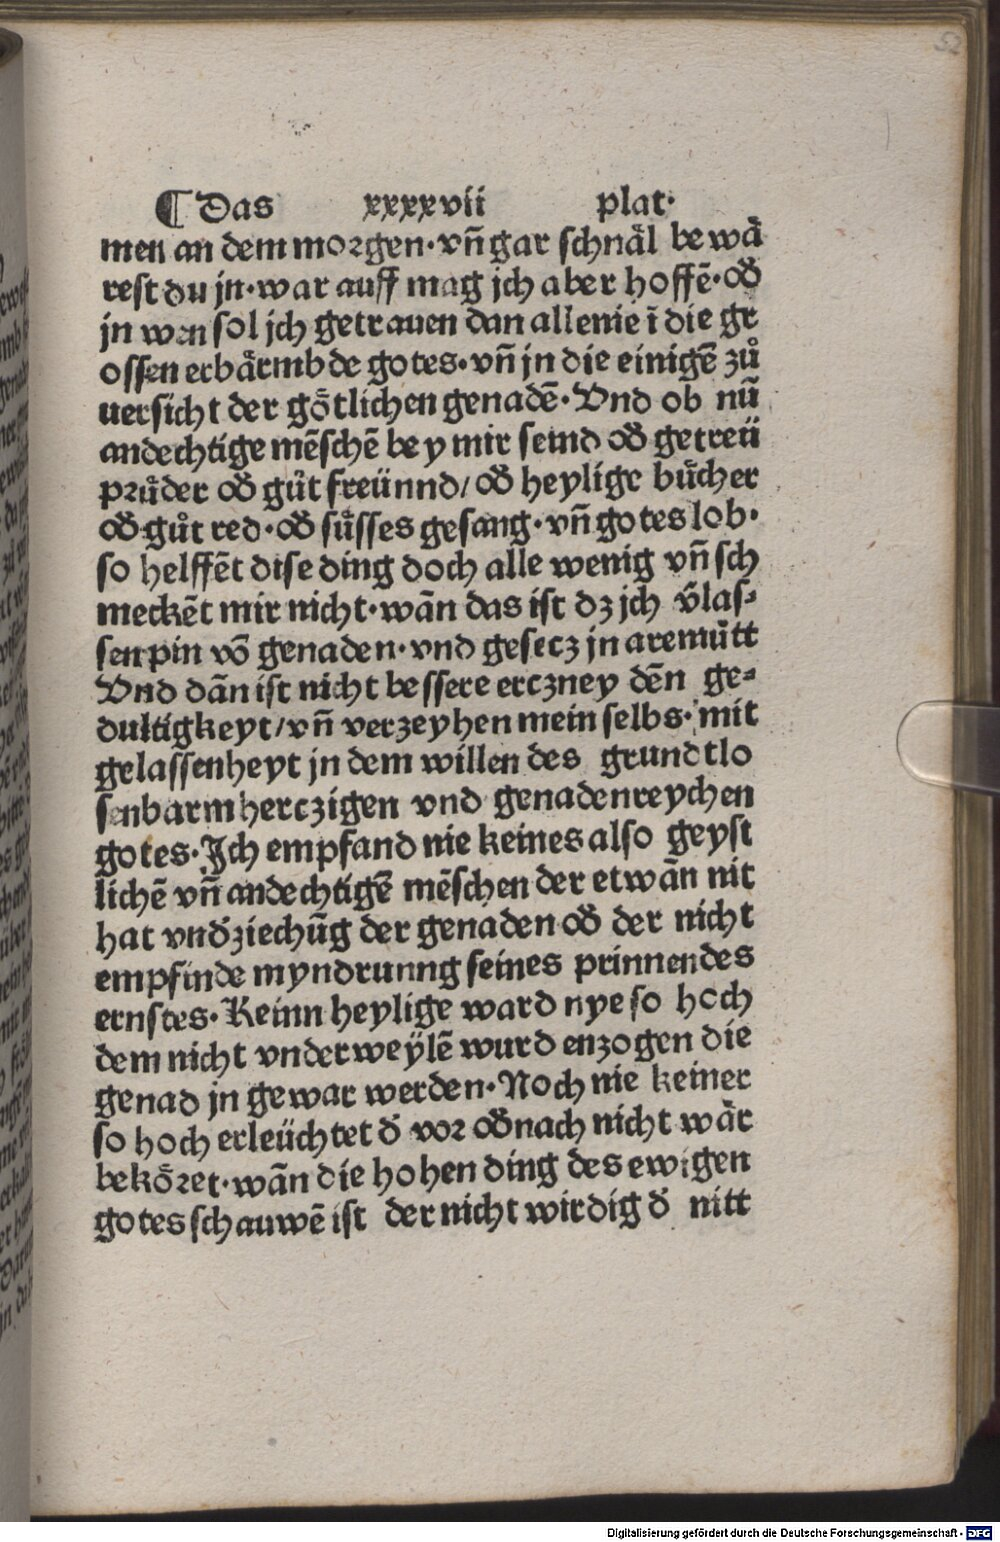 52
¶ Das xxxxvii plat·
men an dem morgen· vn̄ gar schnäl bewä
rest du jn· war auff mag jch aber hoffē· od̄
jn wen sol jch getrauen dan allenie ī die gr
ossen erbärmbde gotes· vn̄ jn die einigē zů
uersicht der götlichen genadē· Vnd ob nū
andechtige mēschē bey mir seind od̄ getreü
průder od̄ gůt freünnd/ od̄ heylige bůcher
od̄ gůt red· od̄ sůsses gesang· vn̄ gotes lob·
so helffēt dise ding doch alle wenig vn̄ sch
meckēt mir nicht· wān das ist dz jch v̄las⸗
sen pin vō genaden· vnd gesecz jn aremůtt
Vnd dān ist nicht bessere erczney dēn ge⸗
dultigkeyt/ vn̄ verzeyhen mein selbs· mit
gelassenheyt jn dem willen des grundtlo
senbarmherczigen vnd genadenreychen
gotes· Jch empfand nie keines also geyst
lichē vn̄ andechtigē mēschen der etwān nit
hat vnd̄ziechūg der genaden od̄ der nicht
empfinde myndrunng seines prinnendes
ernstes· Keinn heylige ward nye so hoch
dem nicht vnderweÿlē wurd enzogen die
genad jn gewar werden· Noch nie keiner
so hoch erleüchtet d̄ vor od̄ nach nicht wär
beköret· wān die hohen ding des ewigen
gotes schauwē ist der nicht wirdig d̄ nitt
Digitalisierung gefördert durch die Deutsche Forschungsgemeinschaft - DFG